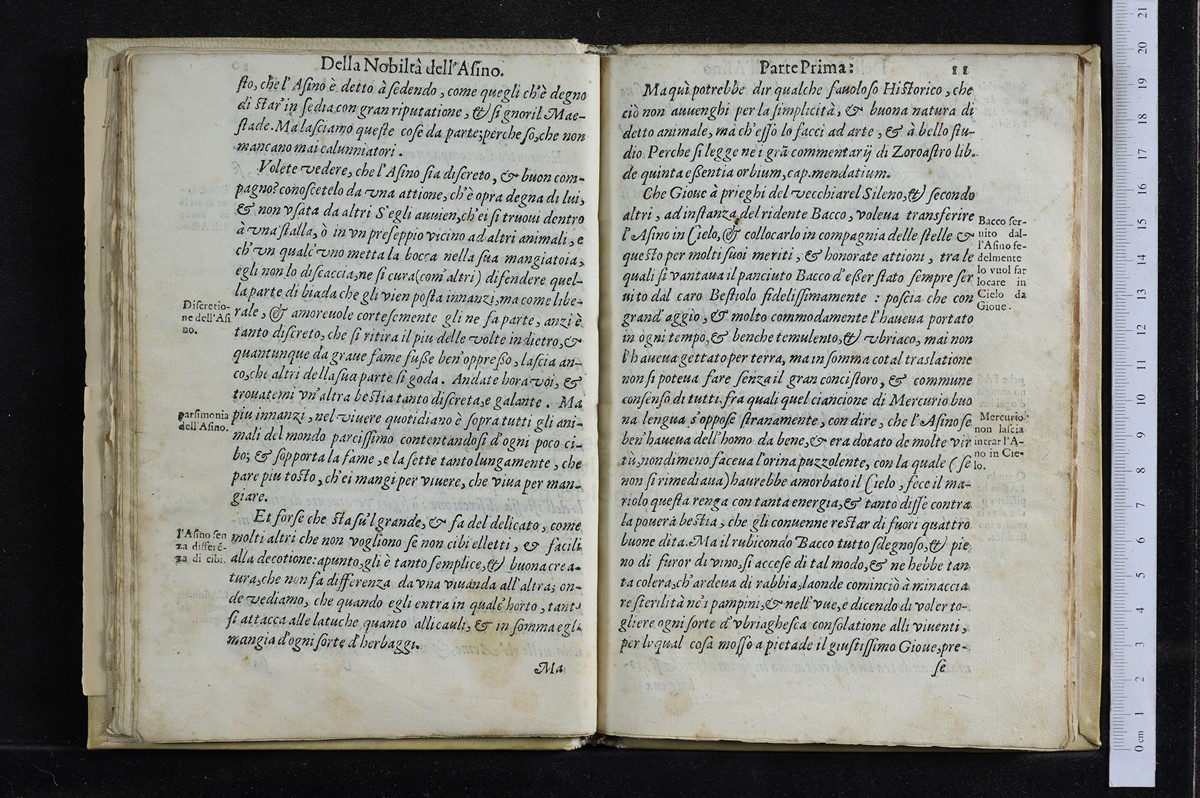 Della Nobiltà dell'Asino.
sto, che l'Asino è detto à sedendo, come quegli ch'è degno
di star'in sedia con gran riputatione, & signoril Mae-
stade. Ma lasciamo queste cose da parte; perche so, che non
mancano mai calunniatori.
Volete vedere, che l'Asino sia discreto, & buon com-
pagno? conoscetelo da vna attione, ch'è opra degna di lui,
& non vsata da altri S'egli auuien, ch'ei si truoui dentro
à vna stalla, ò in vn preseppio vicino ad altri animali, e
ch'vn qualc'vno metta la bocca nella sua mangiatoia,
egli non lo discaccia, ne si cura (com'altri) difendere quel-
la parte di biada che gli vien posta innanzi; ma come libe-
rale, & amoreuole cortesemente gli ne fa parte, anzi è
tanto discreto, che si ritira il piu delle volte in dietro, &
quantunque da graue fame fusse ben'oppresso, lascia an-
co, che altri della sua parte si goda. Andate hora voi, &
trouatemi vn'altra bestia tanto discreta, e galante. Ma
piu innanzi, nel viuere quotidiano è sopra tutti gli ani-
mali del mondo parcissimo contentandosi d'ogni poco ci-
bo; & sopporta la fame, e la sette tanto lungamente, che
pare piu tosto, ch'ei mangi per viuere, che viua per man-
giare.
Et forse che sta su'l grande, & fa del delicato, come
molti altri che non vogliono se non cibi elletti, & facili
alla decotione: apunto, gli è tanto semplice, & buona crea-
tura, che non fa differenza da vna viuanda all'altra; on-
de vediamo, che quando egli entra in qualc'horto, tanto
si attacca alle latuche, quanto alli cauli, & in somma egli
mangia d'ogni sorte d'herbaggi.
Ma
Discretio-
ne dell'Asi
no.
parsimonia
dell'Asino.
l'Asino sen
za differē-
za di cibi.
Parte Prima: 11
Ma quì potrebbe dir qualche fauoloso Historico, che
ciò non auuenghi per la simplicità, & buona natura di
detto animale, ma ch'esso lo facci ad arte, & à bello stu-
dio. Perche si legge ne i grā commentarij di Zoroastro lib.
de quinta essentia orbium, cap. mendatium.
Che Gioue à prieghi del vecchiarel Sileno, & secondo
altri, ad instanza del ridente Bacco, voleua transferire
l'Asino in Cielo, & collocarlo in compagnia delle stelle &
questo per molti suoi meriti, & honorate attioni, tra le
quali si vantaua il panciuto Bacco d'esser stato sempre ser
uito dal caro Bestiolo fidelissimamente: poscia che con
grand'aggio, & molto commodamente l'haueua portato
in ogni tempo, & benche temulento, & vbriaco, mai non
l'haueua gettato per terra, ma in somma cotal traslatione
non si poteua fare senza il gran concistoro, & commune
consenso di tutti. fra quali quel ciancione di Mercurio buo
na lengua s'oppose stranamente, con dire, che l'Asino se
ben'haueua dell'homo da bene, & era dotato de molte vir
tù, nondimeno faceua l'orina puzzolente, con la quale (se
non si rimediaua) haurebbe amorbato il Cielo, fece il ma-
riolo questa renga con tanta energia, & tanto disse contra
la pouera bestia, che gli conuenne restar di fuori quattro
buone dita. Ma il rubicondo Bacco tutto sdegnoso, & pie
no di furor di vino, si accese di tal modo, & ne hebbe tan
ta colera, ch'ardeua di rabbia, laonde cominciò à minaccia
re sterilità ne'i pampini, & nell'vue, e dicendo di voler to-
gliere ogni sorte d'vbriaghesca consolatione alli viuenti,
per la qual cosa mosso a pietade il giustissimo Gioue, pre-
se
Bacco ser-
uito dal-
l'Asino fe-
delmente
lo vuol far
locare in
Cielo da
Gioue.
Mercurio
non lascia
intrar l'A-
no in Cie-
lo.
0 cm 1 2 3 4 5 6 7 8 9 10 11 12 13 14 15 16 17 18 19 20 21